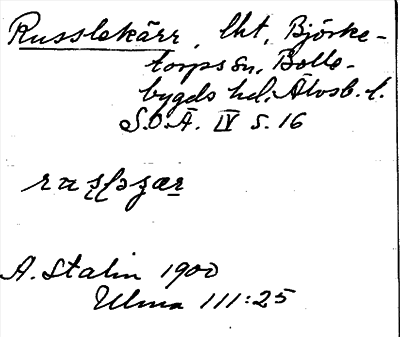 Russlekärr, lht, Björke-
torps sn, Bolle-
bygds hd, Älvsb. l.
S.O.Ä. IV s. 16
A. Stalin 1900
Ulma 111:25